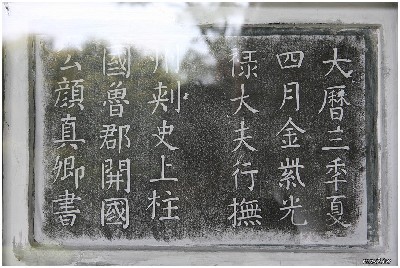 大曆三秊夏
四月金紫光
祿大夫行撫
州刺史上柱
國魯郡開國
公顏真卿書